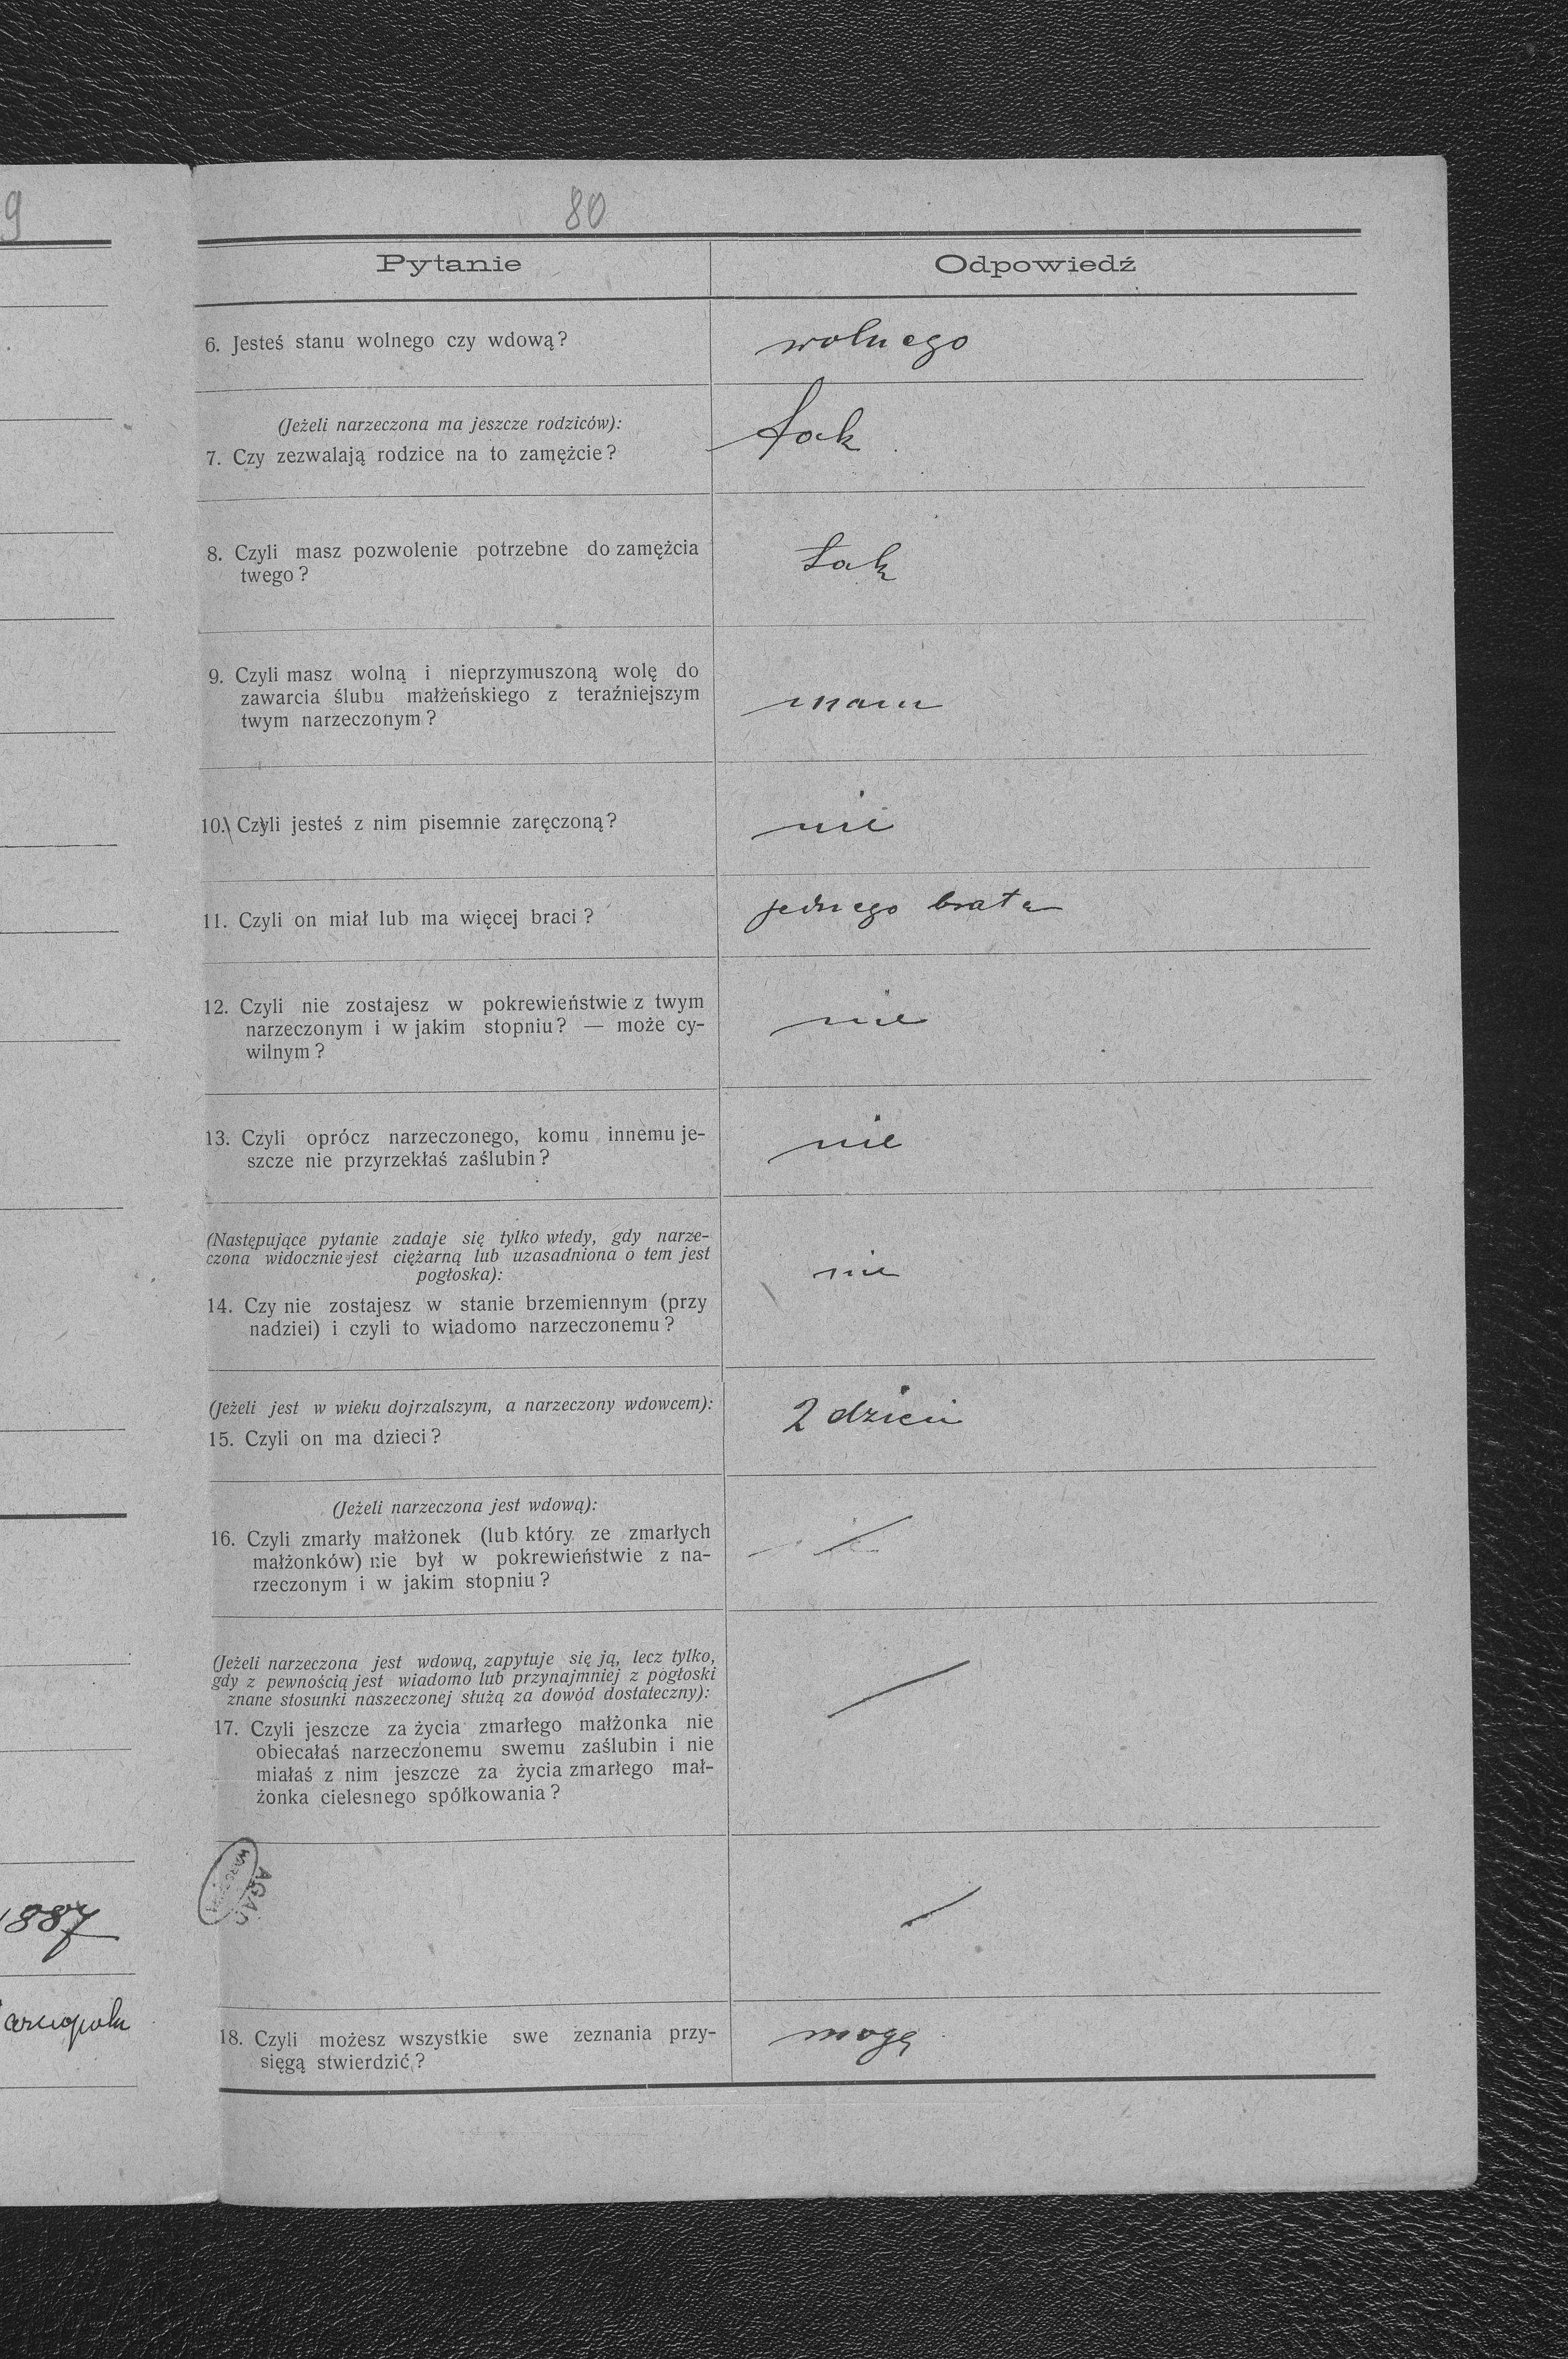 9
80
Pytanie
Odpowiedź
6. Jesteś stanu wolnego czy wdową?
wolnego
(Jeżeli narzeczona ma jeszcze rodziców):
7. Czy zezwalają rodzice na to zamężcie?
tak
8. Czyli masz pozwolenie potrzebne do zamężcia
twego?
tak
9. Czyli masz wolną i nieprzymuszoną wolę do
zawarcia ślubu małżeńskiego z teraźniejszym
twym narzeczonym?
mam
10. Czyli jesteś z nim pisemnie zaręczoną?
nie
11. Czyli on miał lub ma więcej braci?
jednego brata
12. Czyli nie zostajesz w pokrewieństwie z twym
narzeczonym i w jakim stopniu? — może cy-
wilnym?
nie
13. Czyli oprócz narzeczonego, komu innemu je-
szcze nie przyrzekłaś zaślubin?
nie
(Następujące pytanie zadaje się tylko wtedy, gdy narze-
czona widocznie jest ciężarną lub uzasadniona o tem jest
pogłoska):
14. Czy nie zostajesz w stanie brzemiennym (przy
nadziei) i czyli to wiadomo narzeczonemu?
nie
(Jeżeli jest w wieku dojrzalszym, a narzeczony wdowcem):
15. Czyli on ma dzieci?
2 dzieci
(Jeżeli narzeczona jest wdową):
16. Czyli zmarły małżonek (lub który ze zmarłych
małżonków) nie był w pokrewieństwie z na-
rzeczonym i w jakim stopniu?
(Jeżeli narzeczona jest wdową, zapytuje się ją, lecz tylko,
gdy z pewnością jest wiadomo lub przynajmniej z pogłoski
znane stosunki naszeczonej służą za dowód dostateczny):
17. Czyli jeszcze za życia zmarłego małżonka nie
obiecałaś narzeczonemu swemu zaślubin i nie
miałaś z nim jeszcze za życia zmarłego mał-
żonka cielesnego spółkowania?
AGAD
WARSZAWA
1887
18. Czyli możesz wszystkie swe zeznania przy-
sięgą stwierdzić?
mogę